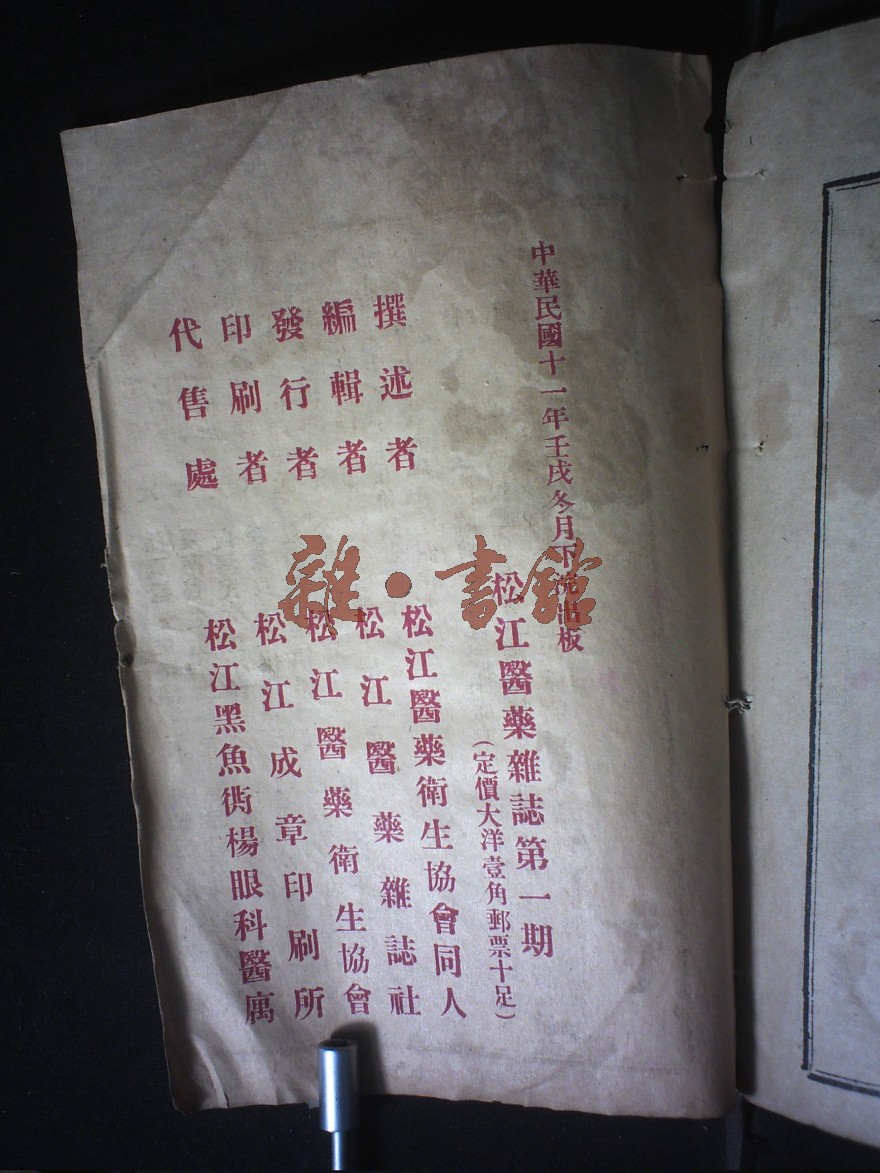 中華民國十一年壬戌冬月下浣出板
松江醫藥雜誌第一期
(定價大洋壹角郵票十足)
撰述者 松江醫藥衛生協會同人
編輯者 松江醫藥雜誌社
發行者 松江醫藥衛生協會
印刷者 松江成章印刷所
代售處 松江黑魚衖楊眼科醫寓
雜·書館